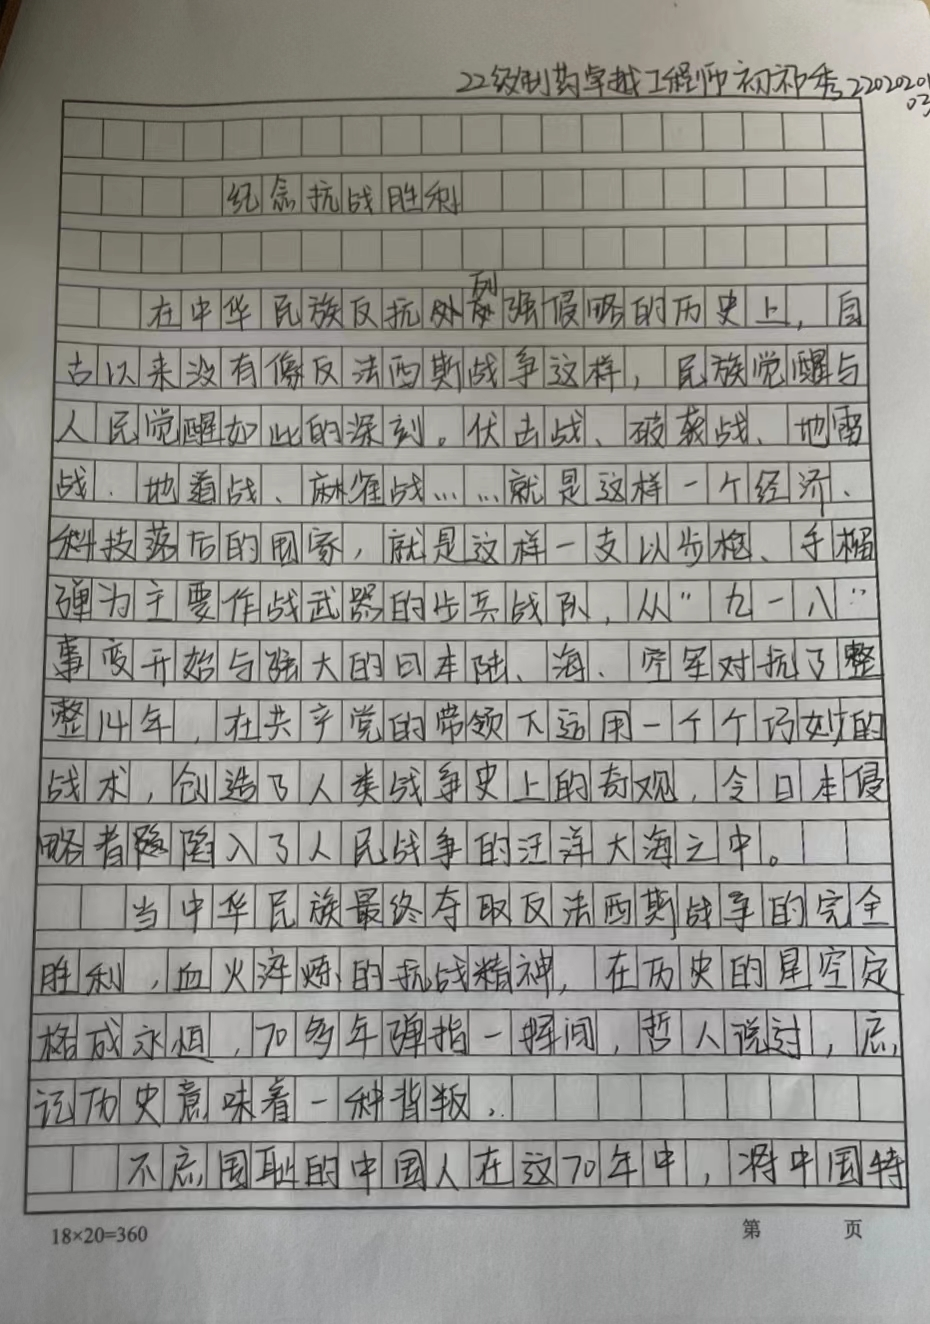 22级制药卓越工程师 初祁秀 22020201
03
纪念抗战胜利
列
在中华民族反抗外强侵略的历史上，自
古以来没有像反法西斯战争这样，民族觉醒与
人民觉醒如此的深刻。伏击战、破袭战、地雷
战、地道战、麻雀战……就是这样一个经济、
科技落后的国家，就是这样一支以步枪、手榴
弹为主要作战武器的步兵战队，从“九一八”
事变开始与强大的日本陆、海、空军对抗了整
整14年，在共产党的带领下运用一个个巧妙的
战术，创造了人类战争史上的奇观，令日本侵
略者陷入了人民战争的汪洋大海之中。
当中华民族最终夺取反法西斯战争的完全
胜利，血火淬炼的抗战精神，在历史的星空定
格成永恒，70多年弹指一挥间，哲人说过，忘
记历史意味着一种背叛。
不忘国耻的中国人在这70年中，将中国特
18×20=360
第 页